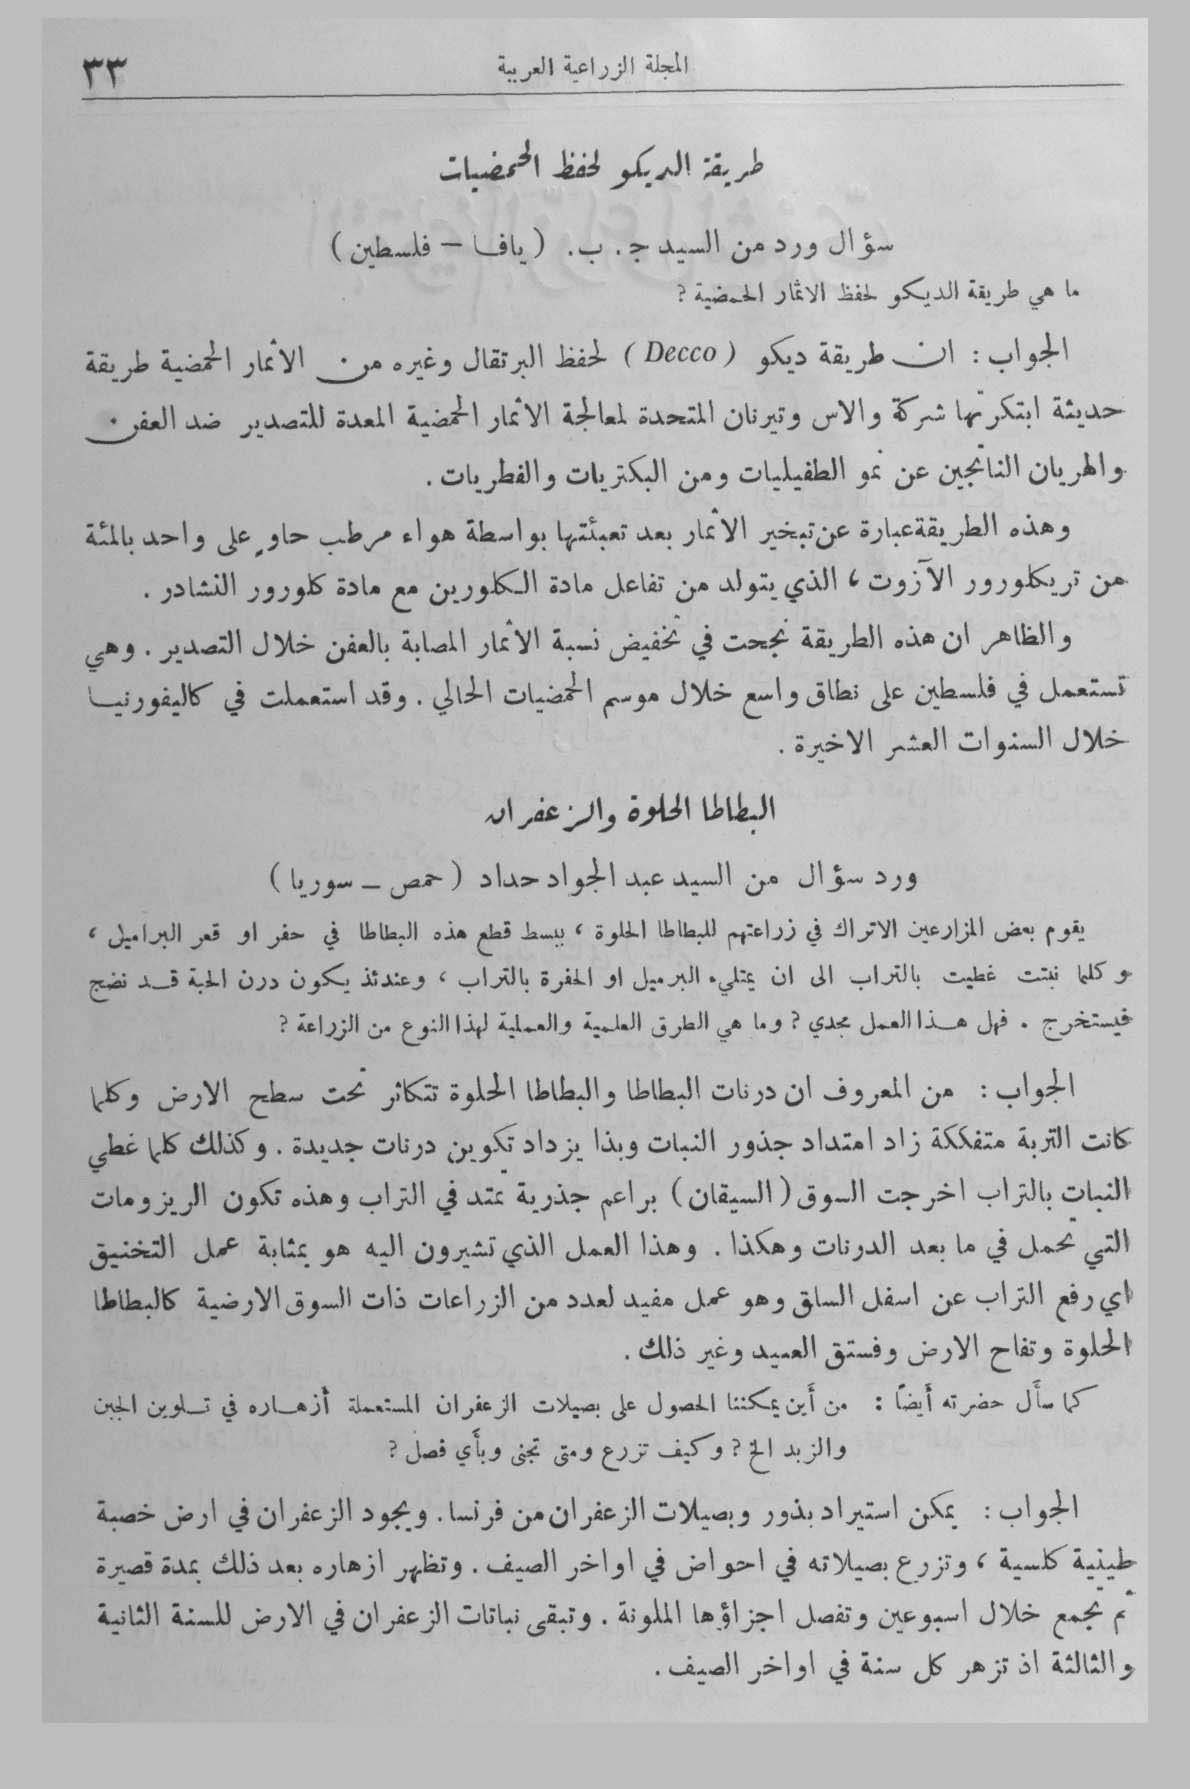 المجلة الزراعية العربية
٣٣
طريقة الديكو لحفظ الحمضيات
سؤال ورد من السيد ج. ب. (يافا – فلسطين)
ما هي طريقة الديكو لحفظ الاثمار الحمضية ؟
الجواب : ان طريقة ديكو (Decco) لحفظ البرتقال وغيره من الأثمار الحمضية طريقة
حديثة ابتكرتها شركة والاس وتيرنان المتحدة لمعالجة الاثمار الحمضية المعدة للتصدير ضد العفن
والهريان الناتجين عن نمو الطفيليات ومن البكتريات والفطريات .
وهذه الطريقة عبارة عن تبخير الاثمار بعد تعبئتها بواسطة هواء مرطب حاوٍ على واحد بالمئة
من تريكلورور الآزوت ، الذي يتولد من تفاعل مادة الكلورين مع مادة كلورور النشادر .
والظاهر ان هذه الطريقة نجحت في تخفيض نسبة الأثمار المصابة بالعفن خلال التصدير . وهي
تستعمل في فلسطين على نطاق واسع خلال موسم الحمضيات الحالي . وقد استعملت في كاليفورنيا
خلال السنوات العشر الاخيرة .
البطاطا الحلوة والزعفران
ورد سؤال من السيد عبد الجواد حداد (حمص – سوريا)
يقوم بعض المزارعين الاتراك في زراعتهم للبطاطا الحلوة ، ببسط قطع هذه البطاطا في حفر او قعر البراميل ،
وكلما نبتت غطيت بالتراب الى ان يمتلىء البرميل او الحفرة بالتراب ، وعندئذ يكون درن الحبة قد نضج
فيستخرج . فهل هذا العمل مجدي ؟ وما هي الطرق العلمية والعملية لهذا النوع من الزراعة ؟
الجواب : من المعروف ان درنات البطاطا والبطاطا الحلوة تتكاثر تحت سطح الارض وكلما
كانت التربة متفككة زاد امتداد جذور النبات وبذا يزداد تكوين درنات جديدة . وكذلك كلما غطي
النبات بالتراب اخرجت السوق (السيقان) براعم جذرية تمتد في التراب وهذه تكون الريزومات
التي تحمل في ما بعد الدرنات وهكذا . وهذا العمل الذي تشيرون اليه هو بمثابة عمل التخنيق
اي رفع التراب عن اسفل الساق وهو عمل مفيد لعدد من الزراعات ذات السوق الارضية كالبطاطا
الحلوة وتفاح الارض وفستق العبيد وغير ذلك .
كما سأل حضرته أيضًا : من أين يمكننا الحصول على بصيلات الزعفران المستعملة أزهاره في تلوين الجبن
والزبد الخ ؟ وكيف تزرع ومتى تجنى وبأي فصل ؟
الجواب : يمكن استيراد بذور وبصيلات الزعفران من فرنسا . ويجود الزعفران في ارض خصبة
طينية كلسية ، وتزرع بصيلاته في احواض في اواخر الصيف . وتظهر ازهاره بعد ذلك بمدة قصيرة
ثم تجمع خلال اسبوعين وتفصل اجزاؤها الملونة . وتبقى نباتات الزعفران في الارض للسنة الثانية
والثالثة اذ تزهر كل سنة في اواخر الصيف .